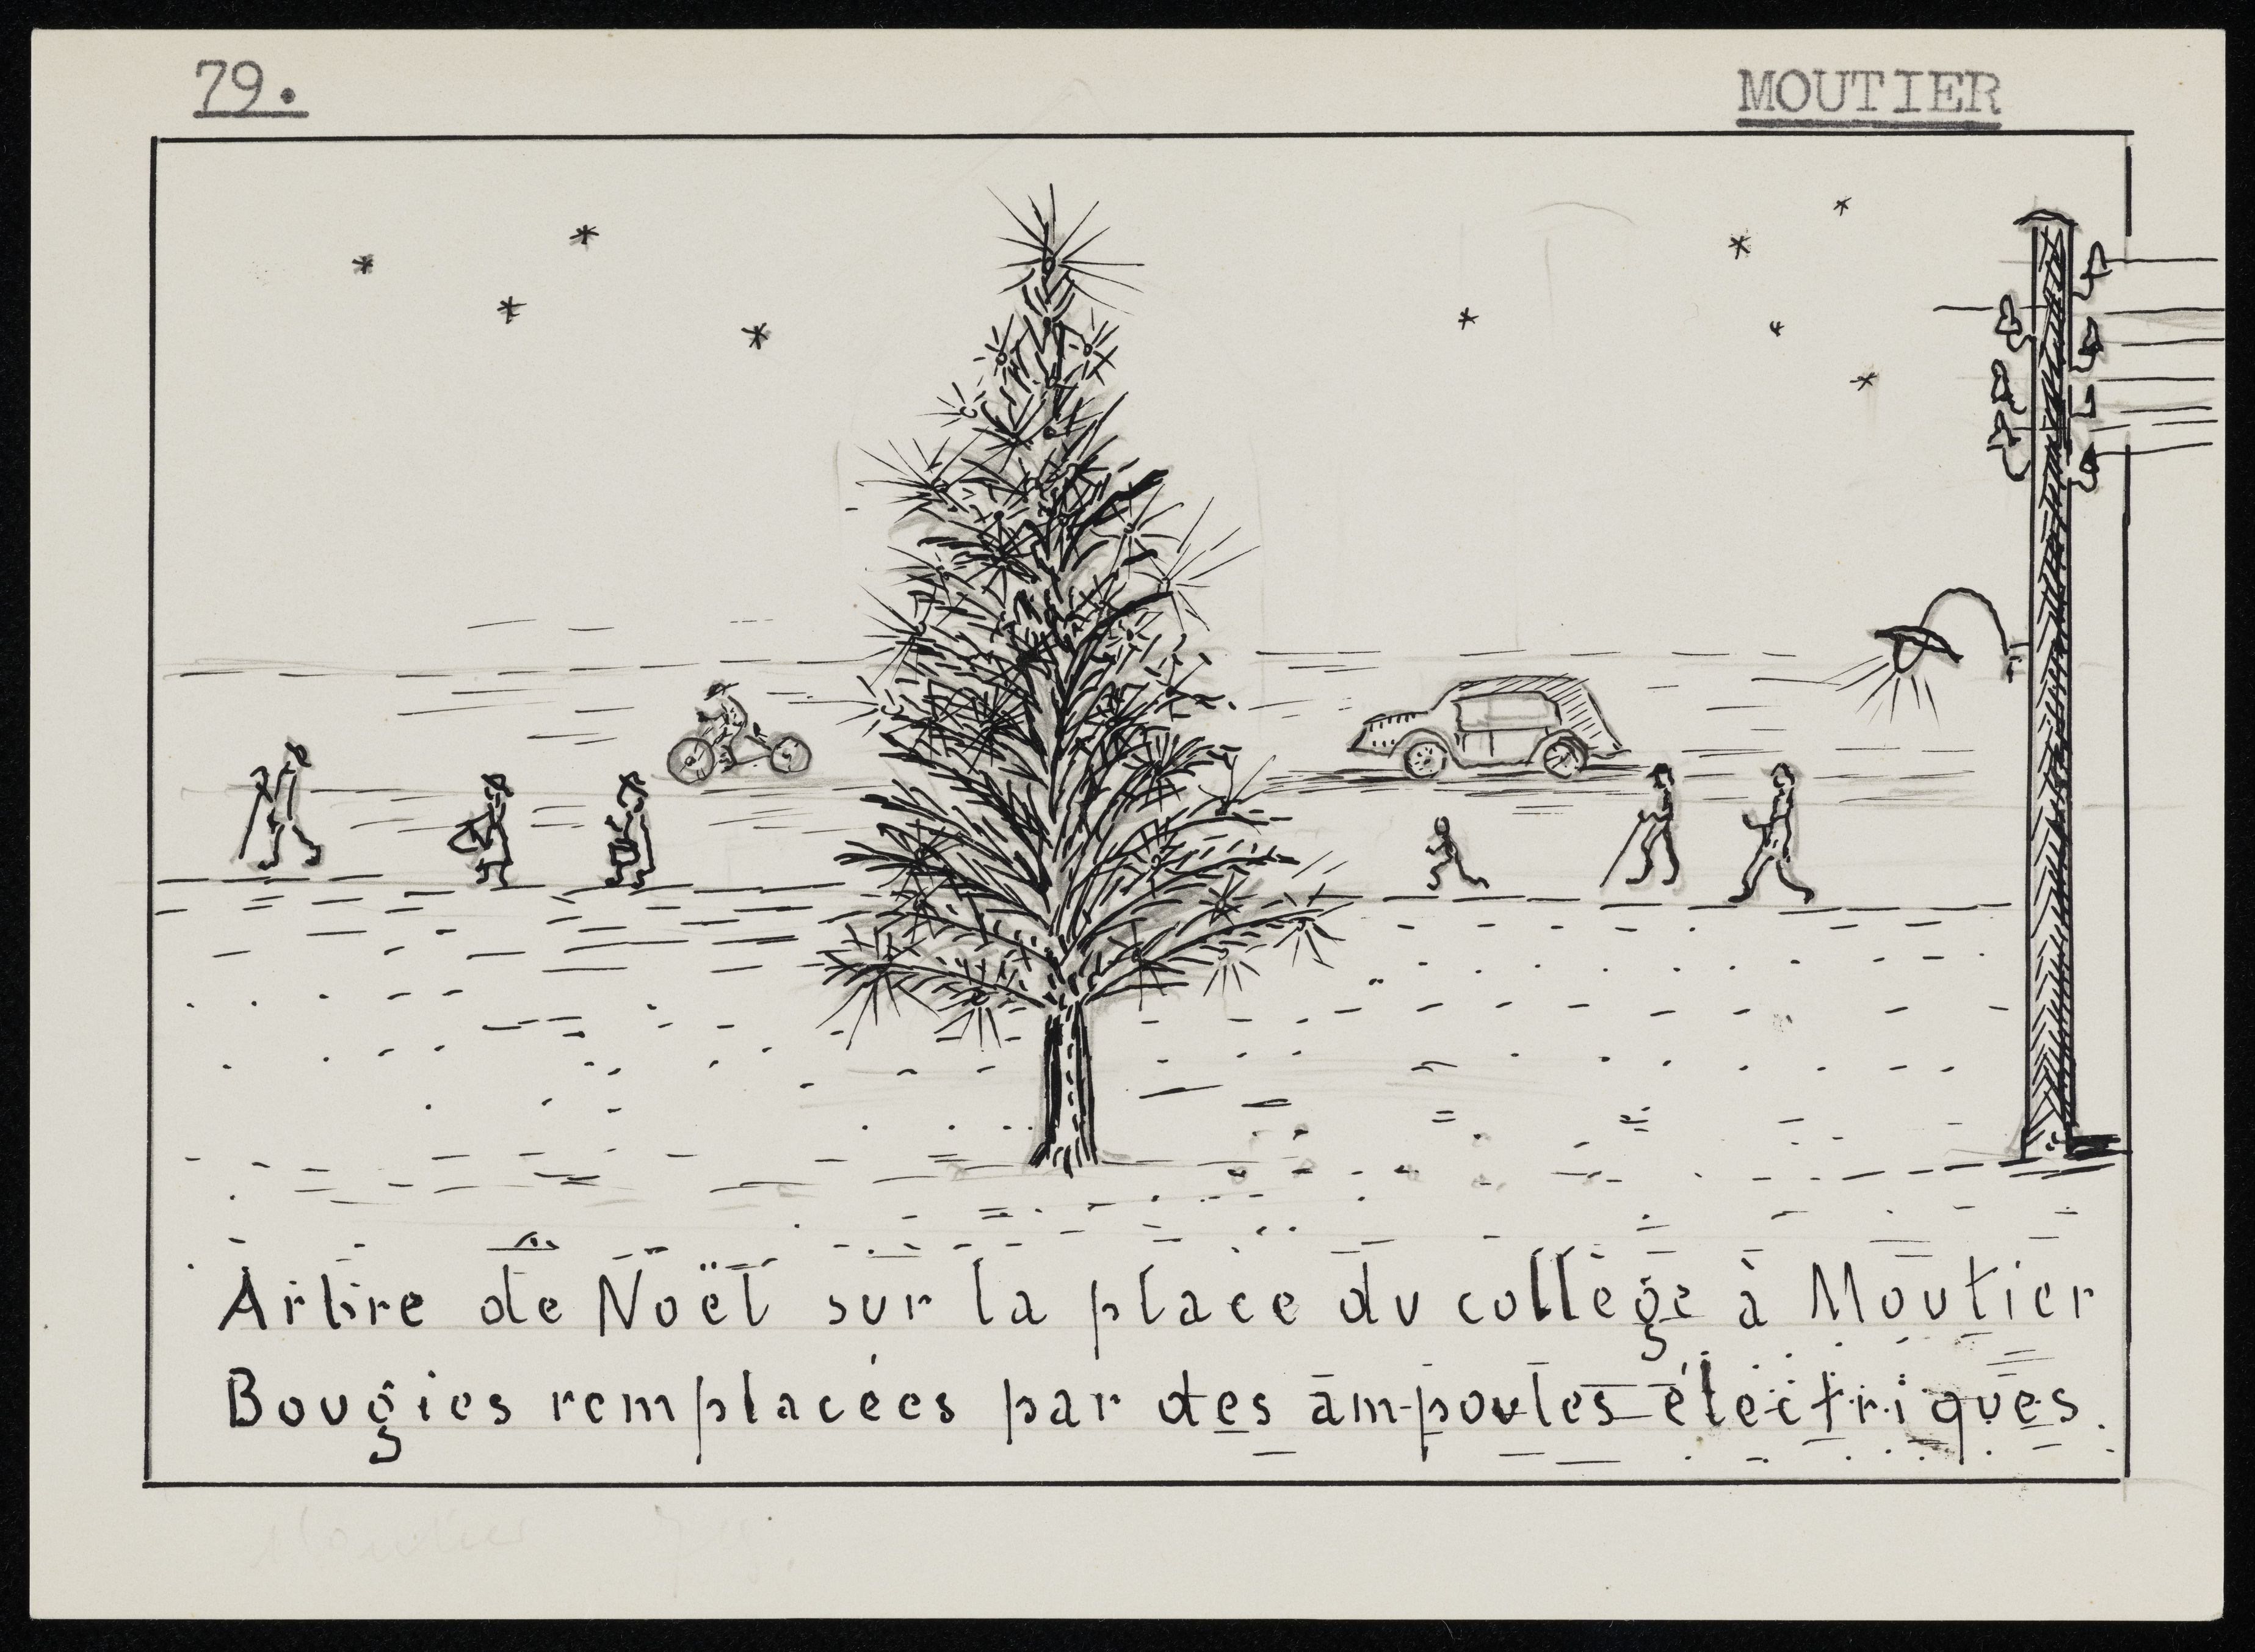 79.
MOUTIER
Arbre de Noël sur la place du collège à Moutier
Bougies remplacées par des ampoules électriques.
Moutier 79.